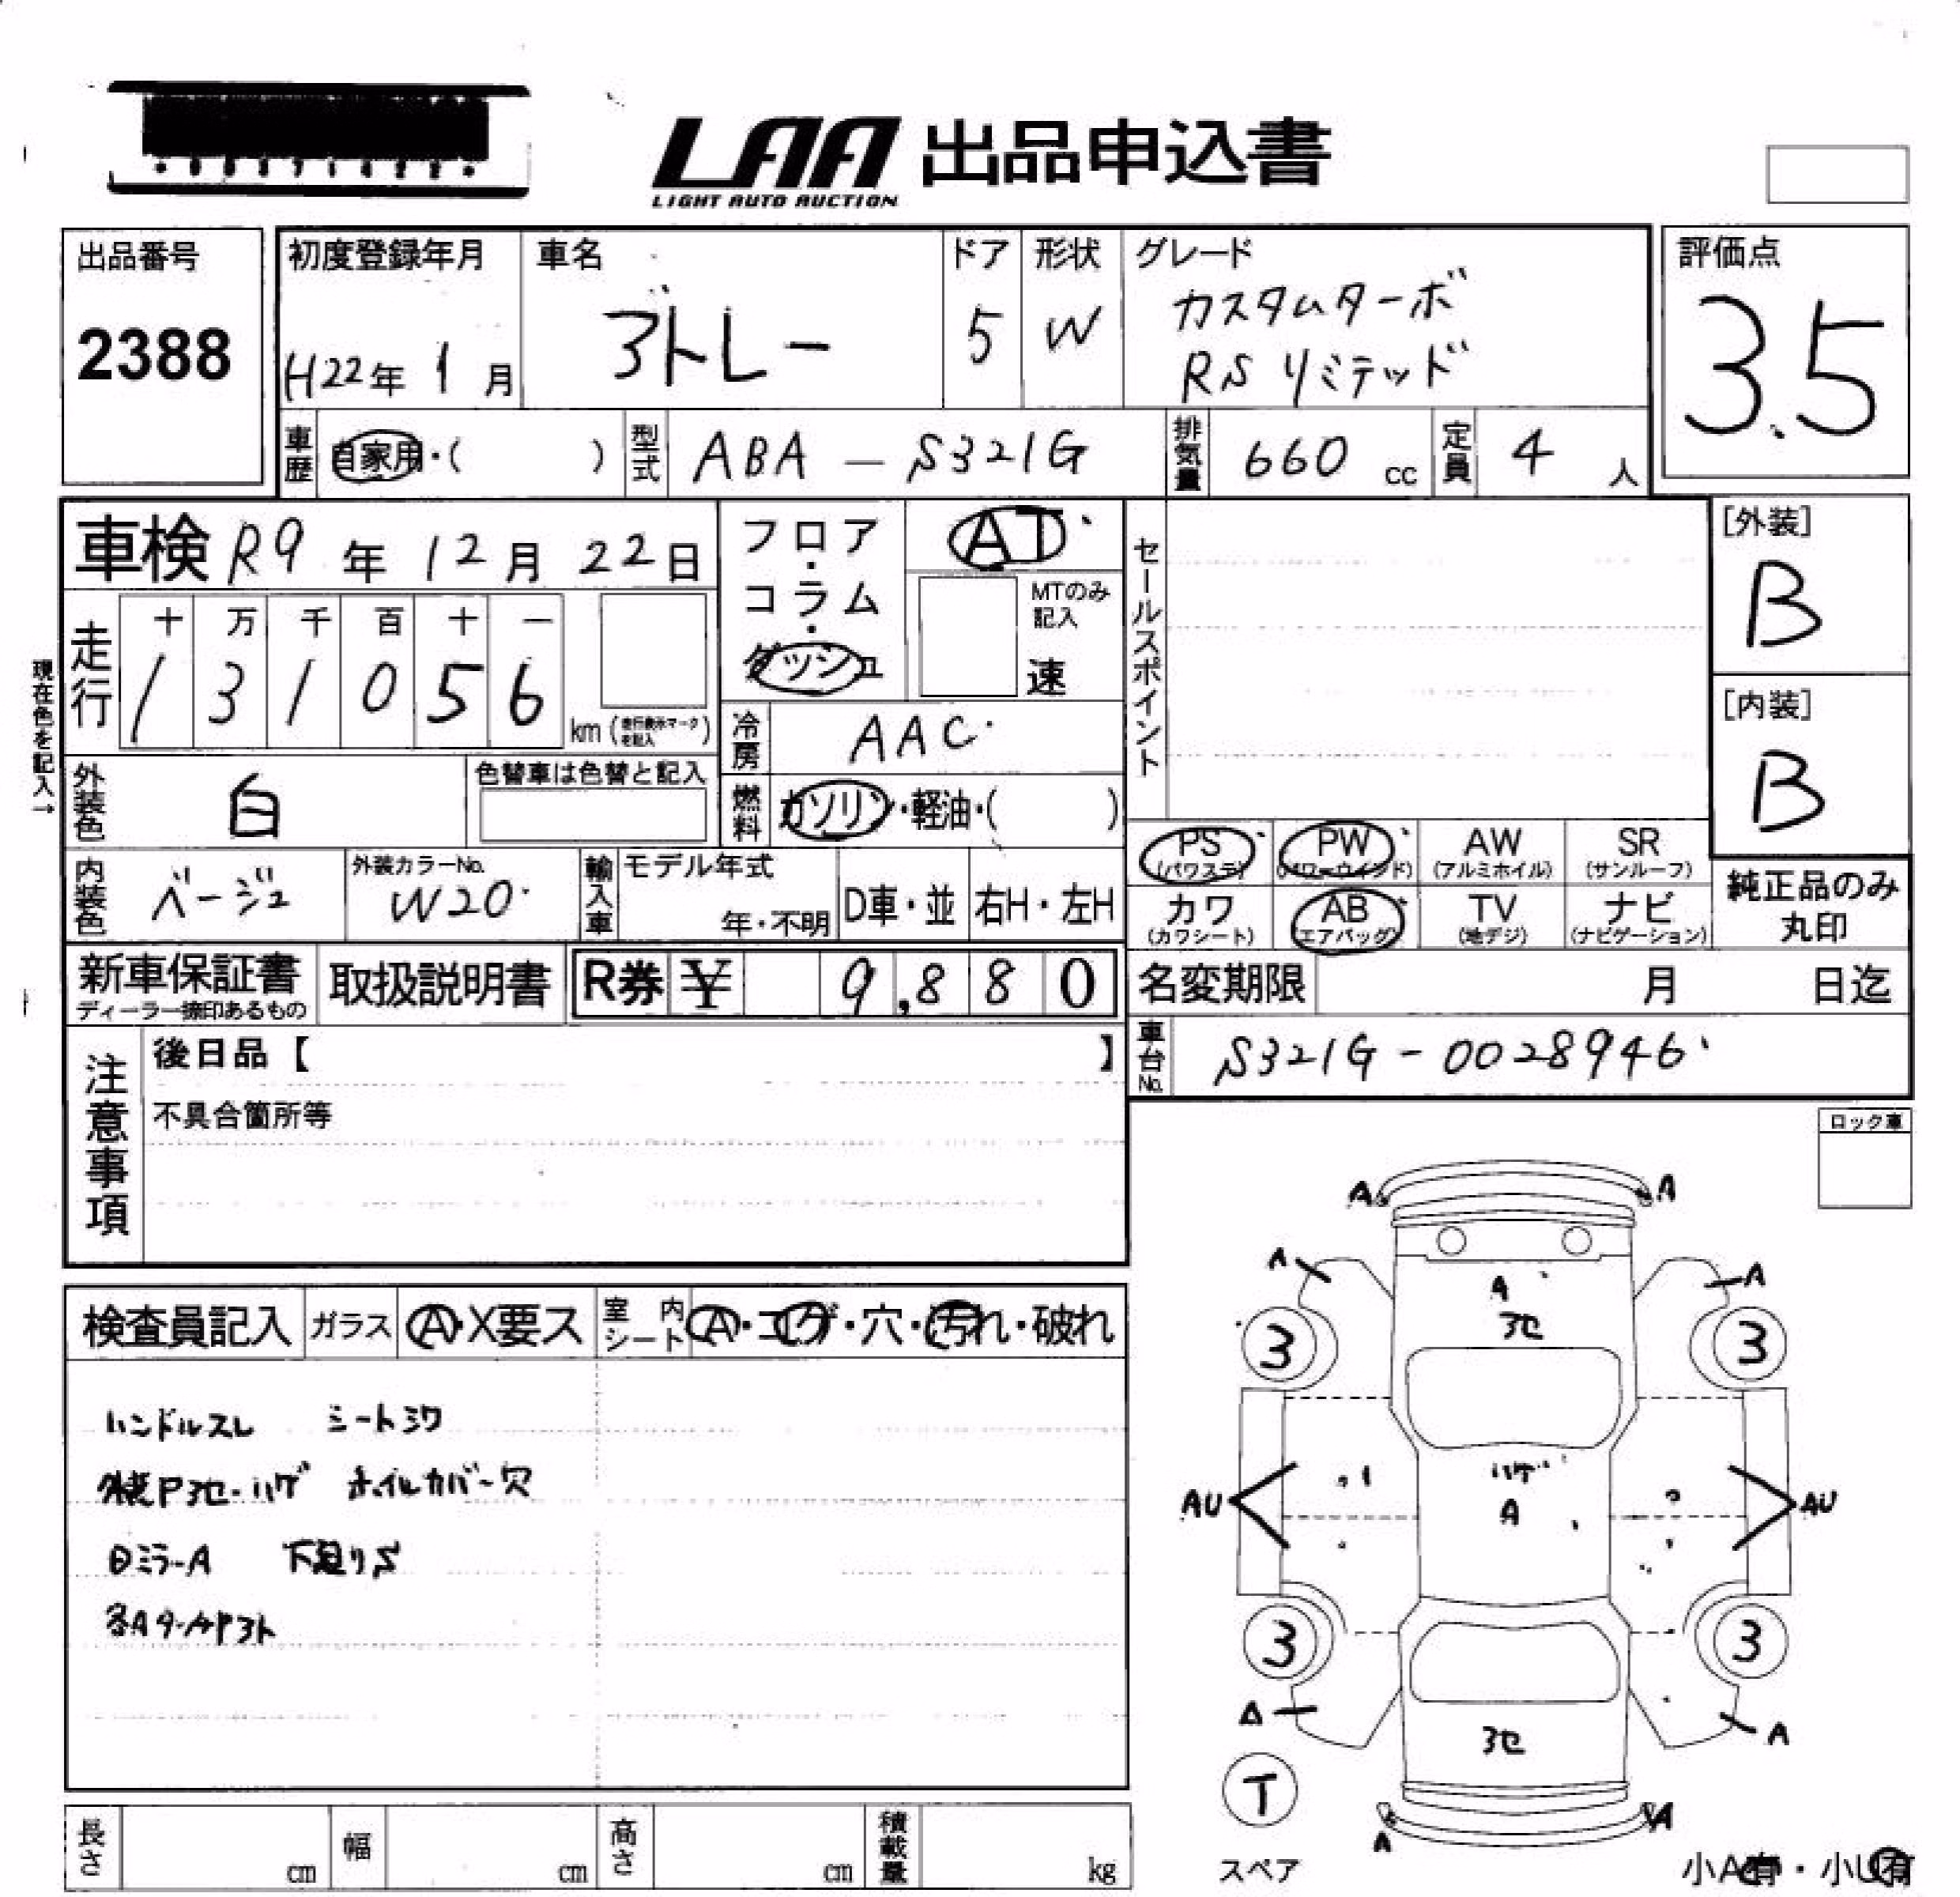 LAA 出品申込書
LIGHT AUTO AUCTION
出品番号
2388
初度登録年月
H22年 1月
車名
アトレー
ドア
5
形状
W
グレード
カスタムターボ
RS リミテッド
評価点
3.5
車歴
自家用・( )
型式
ABA - S321G
排気量
660 cc
定員
4 人
車検 R9年 12月 22日
フロア・コラム・ダッシュ
AT
MTのみ記入
速
セールスポイント
[外装]
B
[内装]
B
現在色を記入→
走行
十 万 千 百 十 一
1 3 1 0 5 6
km (走行表示マークを記入)
冷房
AAC
外装色
白
色替車は色替と記入
燃料
ガソリン・軽油・( )
内装色
ベージュ
外装カラーNo.
W20
輸入車
モデル年式
年・不明
D車・並
右H・左H
PS (パワステ)
PW (パワーウインド)
AW (アルミホイル)
SR (サンルーフ)
カワ (カワシート)
AB (エアバッグ)
TV (地デジ)
ナビ (ナビゲーション)
純正品のみ丸印
新車保証書
ディーラー捺印あるもの
取扱説明書
R券 ¥ 9,880
名変期限 月 日迄
車台No.
S321G-0028946
注意事項
後日品【 】
不具合箇所等
ロック車
検査員記入
ガラス
A・X要ス
室内シート
A・コゲ・穴・汚れ・破れ
ハンドルスレ シートシワ
外装Pヨセ・ハゲ ホイルカバー穴
ミラーA 下廻りS
A A
A A
A
ヨセ
3 3
ハゲ
A
AU AU
3 3
A A
ヨセ
T
スペア
A A
小A有・小U有
長さ cm
幅 cm
高さ cm
積載量 kg